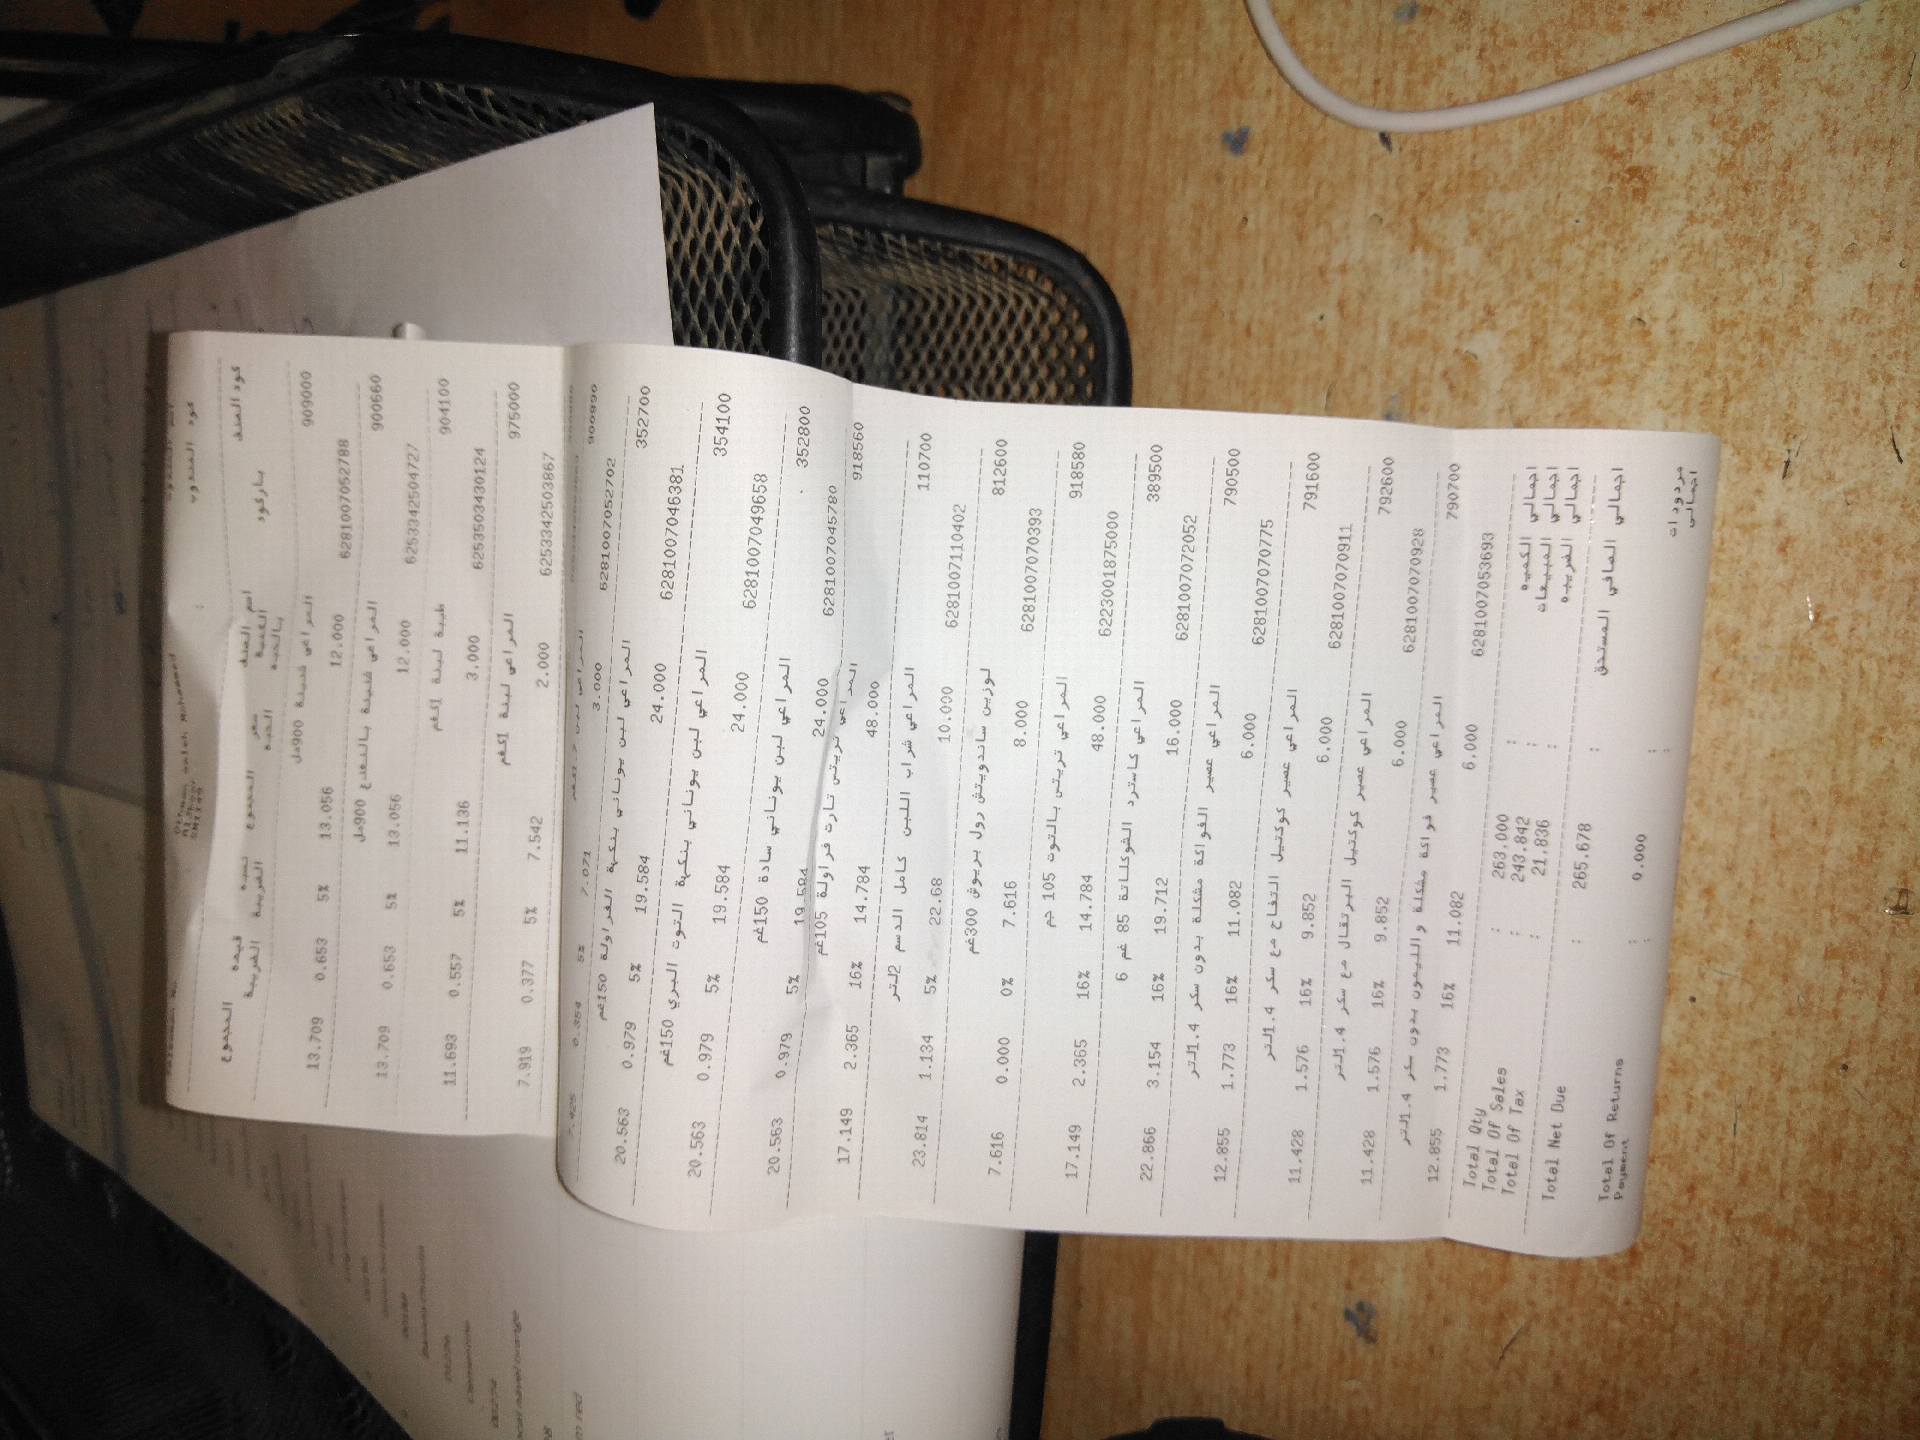 كود المندوب
كود الصنف باركود اسم الصنف
الكمية بالحبه سعر الحبه المجموع نسبه الضريبة قيمه الضريبة المجموع
909000 المراعي قشطة 900مل
6281007052788 12.000 13.056 5% 0.653 13.709
900660 المراعي 900مل
6253342504727 12.000 13.056 5% 0.653 13.709
904100 طيبة لبنة 1كغم
6253503430124 3.000 11.136 5% 0.557 11.693
975000 المراعي لبنة 1كغم
6253342503867 2.000 7.542 5% 0.377 7.919
900890
3.000 7.071 5% 0.354 7.425
6281007052702 المراعي لبن يوناني بنكهة الفراولة 150غم
352700 24.000 19.584 5% 0.979 20.563
6281007046381 المراعي لبن يوناني بنكهة التوت البري 150غم
354100 24.000 19.584 5% 0.979 20.563
6281007049658 المراعي لبن يوناني سادة 150غم
352800 24.000 19.584 5% 0.979 20.563
6281007045780 المراعي تريتس تارت فراولة 105غم
918560 48.000 14.784 16% 2.365 17.149
110700 المراعي شراب اللبن كامل الدسم 2لتر
6281007110402 10.000 22.68 5% 1.134 23.814
812600 لوزين ساندويتش رول بريوش 300غم
6281007070393 8.000 7.616 0% 0.000 7.616
918580 المراعي تريتس بالتوت 105 جم
6223001875000 48.000 14.784 16% 2.365 17.149
389500 المراعي كاسترد الشوكلاتة 85 غم 6
6281007072052 16.000 19.712 16% 3.154 22.866
790500 المراعي عصير الفواكة مشكلة بدون سكر 1.4لتر
6281007070775 6.000 11.082 16% 1.773 12.855
791600 المراعي عصير كوكتيل التفاح مع سكر 1.4لتر
6281007070911 6.000 9.852 16% 1.576 11.428
792600 المراعي عصير كوكتيل البرتقال مع سكر 1.4لتر
6281007070928 6.000 9.852 16% 1.576 11.428
790700 المراعي عصير فواكة مشكلة و الليمون بدون سكر 1.4لتر
6281007053693 6.000 11.082 16% 1.773 12.855
Total Qty : 263.000 : اجمالي الكميه
Total Of Sales : 243.842 : اجمالي المبيعات
Total Of Tax : 21.836 : اجمالي الضريبه
Total Net Due : 265.678 : اجمالي الصافي المستحق
Total Of Returns : 0.000 : اجمالي مردودات
Payment : :